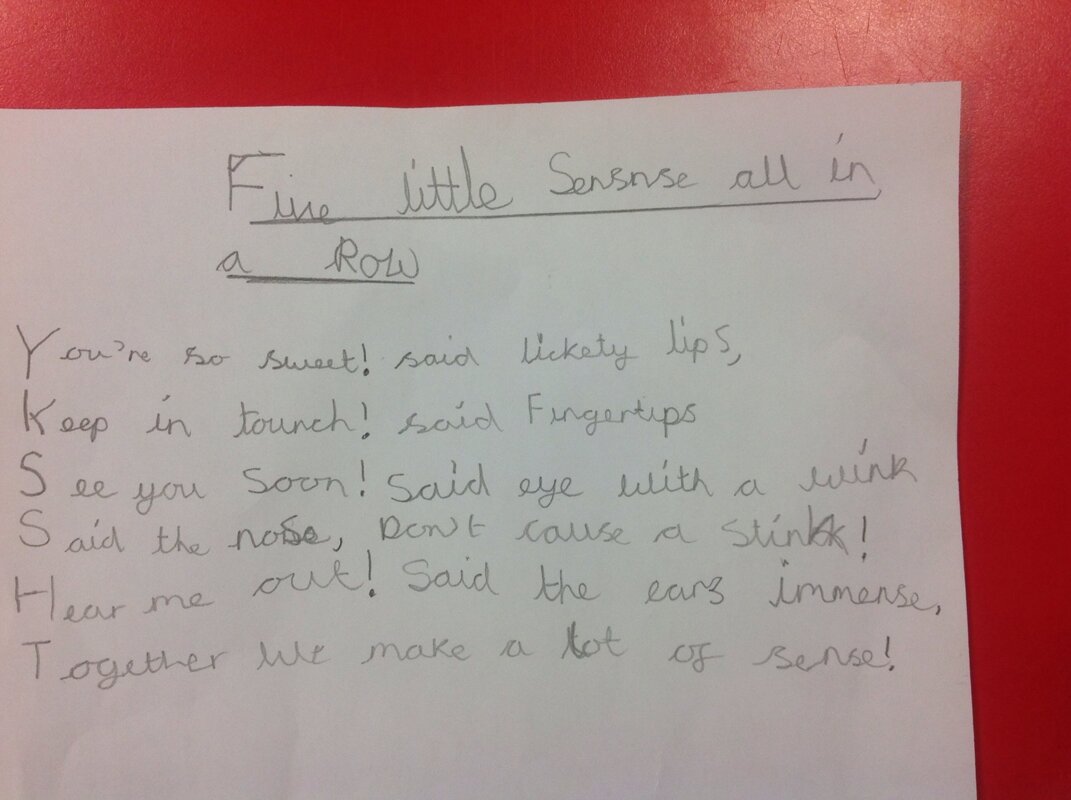 Five little Sensnse all in
a Row
You're so sweet! said lickety lips,
Keep in tounch! said Fingertips
See you Soon! Said eye with a wink
Said the nose, Don't cause a Stink!
Hear me out! Said the ears immense,
Together We make a lot of sense!